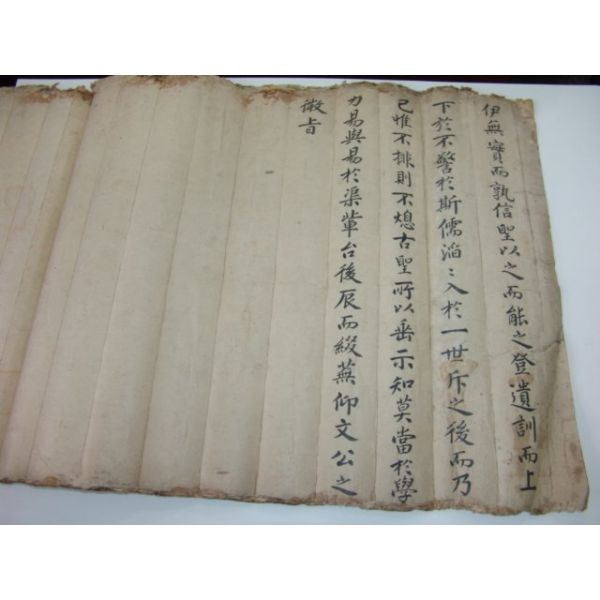 伊無實而孰信聖以之而能之登遺訓而上
下於不警於斯儒滔〻入於一世斥之後而乃
已惟不排則不熄古聖所以垂示知莫當於學
力易與易於渠輩台後辰而綴蕪仰文公之
微旨